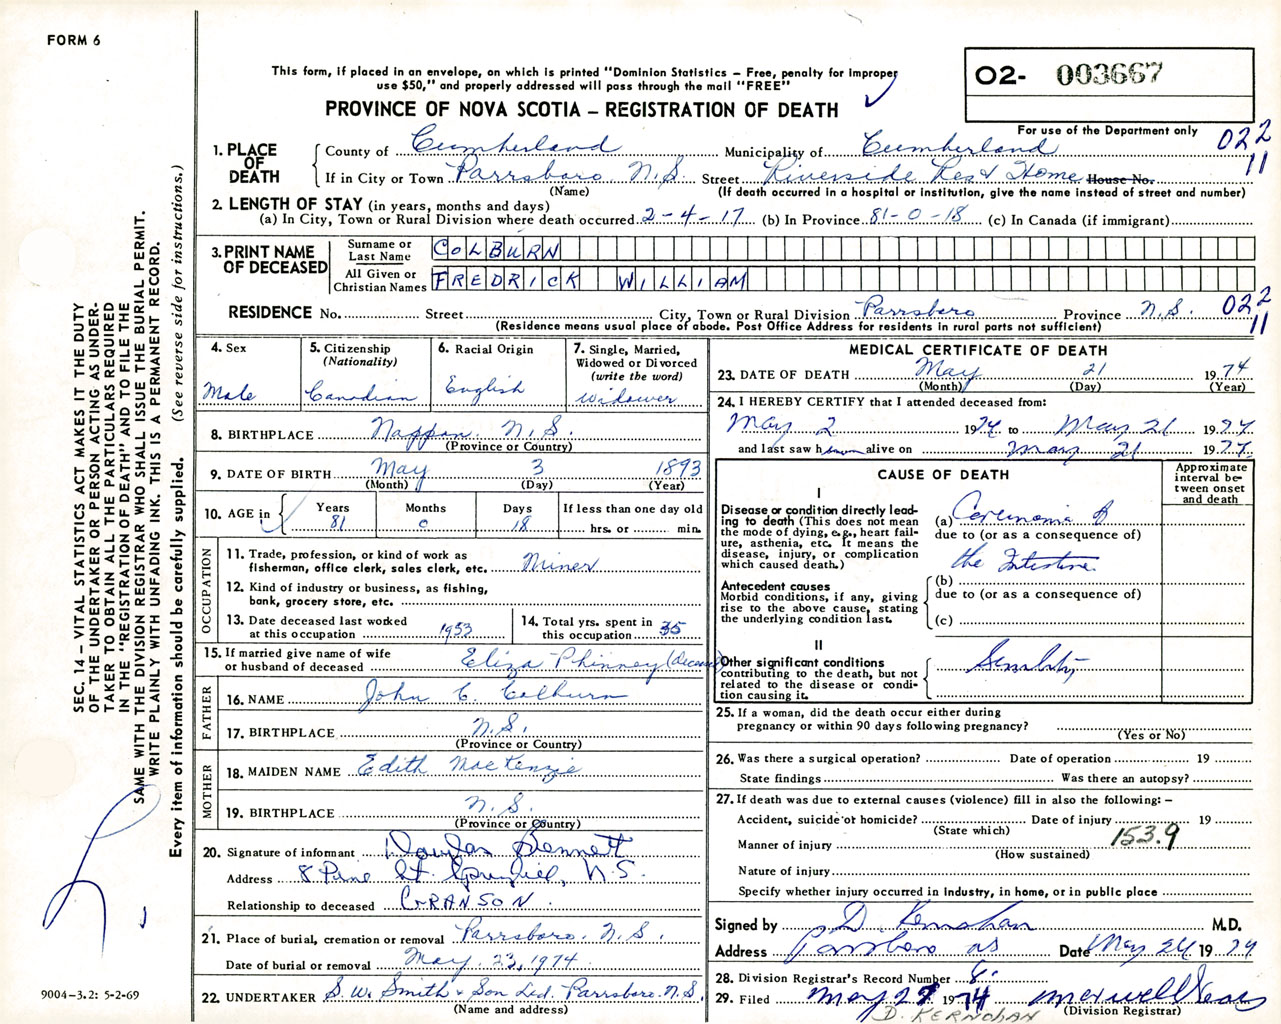 FORM 6
This form, if placed in an envelope, on which is printed "Dominion Statistics – Free, penalty for improper
use $50," and properly addressed will pass through the mail "FREE"
PROVINCE OF NOVA SCOTIA – REGISTRATION OF DEATH
O2- 003667
For use of the Department only
022
11
1. PLACE OF DEATH
County of Cumberland Municipality of Cumberland
If in City or Town Parrsboro N.S. Street Riverside Rest Home House No.
(Name) (If death occurred in a hospital or institution, give the name instead of street and number)
2. LENGTH OF STAY (in years, months and days)
(a) In City, Town or Rural Division where death occurred 2-4-17 (b) In Province 81-0-18 (c) In Canada (if immigrant)
3. PRINT NAME OF DECEASED
Surname or Last Name COLBURN
All Given or Christian Names FREDRICK WILLIAM
RESIDENCE No. Street City, Town or Rural Division Parrsboro Province N.S. 022
11
(Residence means usual place of abode. Post Office Address for residents in rural parts not sufficient)
4. Sex Male
5. Citizenship (Nationality) Canadian
6. Racial Origin English
7. Single, Married, Widowed or Divorced (write the word) Widower
8. BIRTHPLACE Nappan. N.S.
(Province or Country)
9. DATE OF BIRTH May 3 1893
(Month) (Day) (Year)
10. AGE in Years 81 Months 0 Days 18 If less than one day old hrs. or min.
OCCUPATION
11. Trade, profession, or kind of work as
fisherman, office clerk, sales clerk, etc. Miner
12. Kind of industry or business, as fishing,
bank, grocery store, etc.
13. Date deceased last worked
at this occupation 1953
14. Total yrs. spent in
this occupation 35
15. If married give name of wife
or husband of deceased Eliza Phinney
FATHER
16. NAME John C. Colburn
17. BIRTHPLACE N.S.
(Province or Country)
MOTHER
18. MAIDEN NAME Edith MacKenzie
19. BIRTHPLACE N.S.
(Province or Country)
20. Signature of informant Douglas Bennett
Address 8 Pine St. N.S.
Relationship to deceased GRANSON.
21. Place of burial, cremation or removal Parrsboro. N.S.
Date of burial or removal May. 23, 1974
22. UNDERTAKER S. W. Smith & Son Ltd. Parrsboro. N.S.
(Name and address)
MEDICAL CERTIFICATE OF DEATH
23. DATE OF DEATH May 21 1974
(Month) (Day) (Year)
24. I HEREBY CERTIFY that I attended deceased from:
May 2 1974 to May 21 1974
and last saw h alive on May 21 1974.
CAUSE OF DEATH
Approximate interval between onset and death
I
Disease or condition directly leading to death (This does not mean the mode of dying, e.g., heart failure, asthenia, etc. It means the disease, injury, or complication which caused death.)
(a) Carcinoma of
due to (or as a consequence of)
the Intestine.
Antecedent causes
Morbid conditions, if any, giving rise to the above cause, stating the underlying condition last.
(b)
due to (or as a consequence of)
(c)
II
Other significant conditions contributing to the death, but not related to the disease or condition causing it.
Senility
25. If a woman, did the death occur either during
pregnancy or within 90 days following pregnancy?
(Yes or No)
26. Was there a surgical operation? Date of operation 19
State findings Was there an autopsy?
27. If death was due to external causes (violence) fill in also the following: –
Accident, suicide or homicide? Date of injury 19
(State which)
153.9
Manner of injury
(How sustained)
Nature of injury
Specify whether injury occurred in industry, in home, or in public place
Signed by D. Kernohan M.D.
Address Parrsboro NS Date May 24 1974
28. Division Registrar's Record Number 8.
29. Filed May 27 1974
(Division Registrar)
D. KERNOHAN
SEC. 14 – VITAL STATISTICS ACT MAKES IT THE DUTY
OF THE UNDERTAKER OR PERSON ACTING AS UNDER-
TAKER TO OBTAIN ALL THE PARTICULARS REQUIRED
IN THE "REGISTRATION OF DEATH" AND TO FILE THE
SAME WITH THE DIVISION REGISTRAR WHO SHALL ISSUE THE BURIAL PERMIT.
WRITE PLAINLY WITH UNFADING INK. THIS IS A PERMANENT RECORD.
Every item of information should be carefully supplied. (See reverse side for instructions.)
9004-3.2: 5-2-69